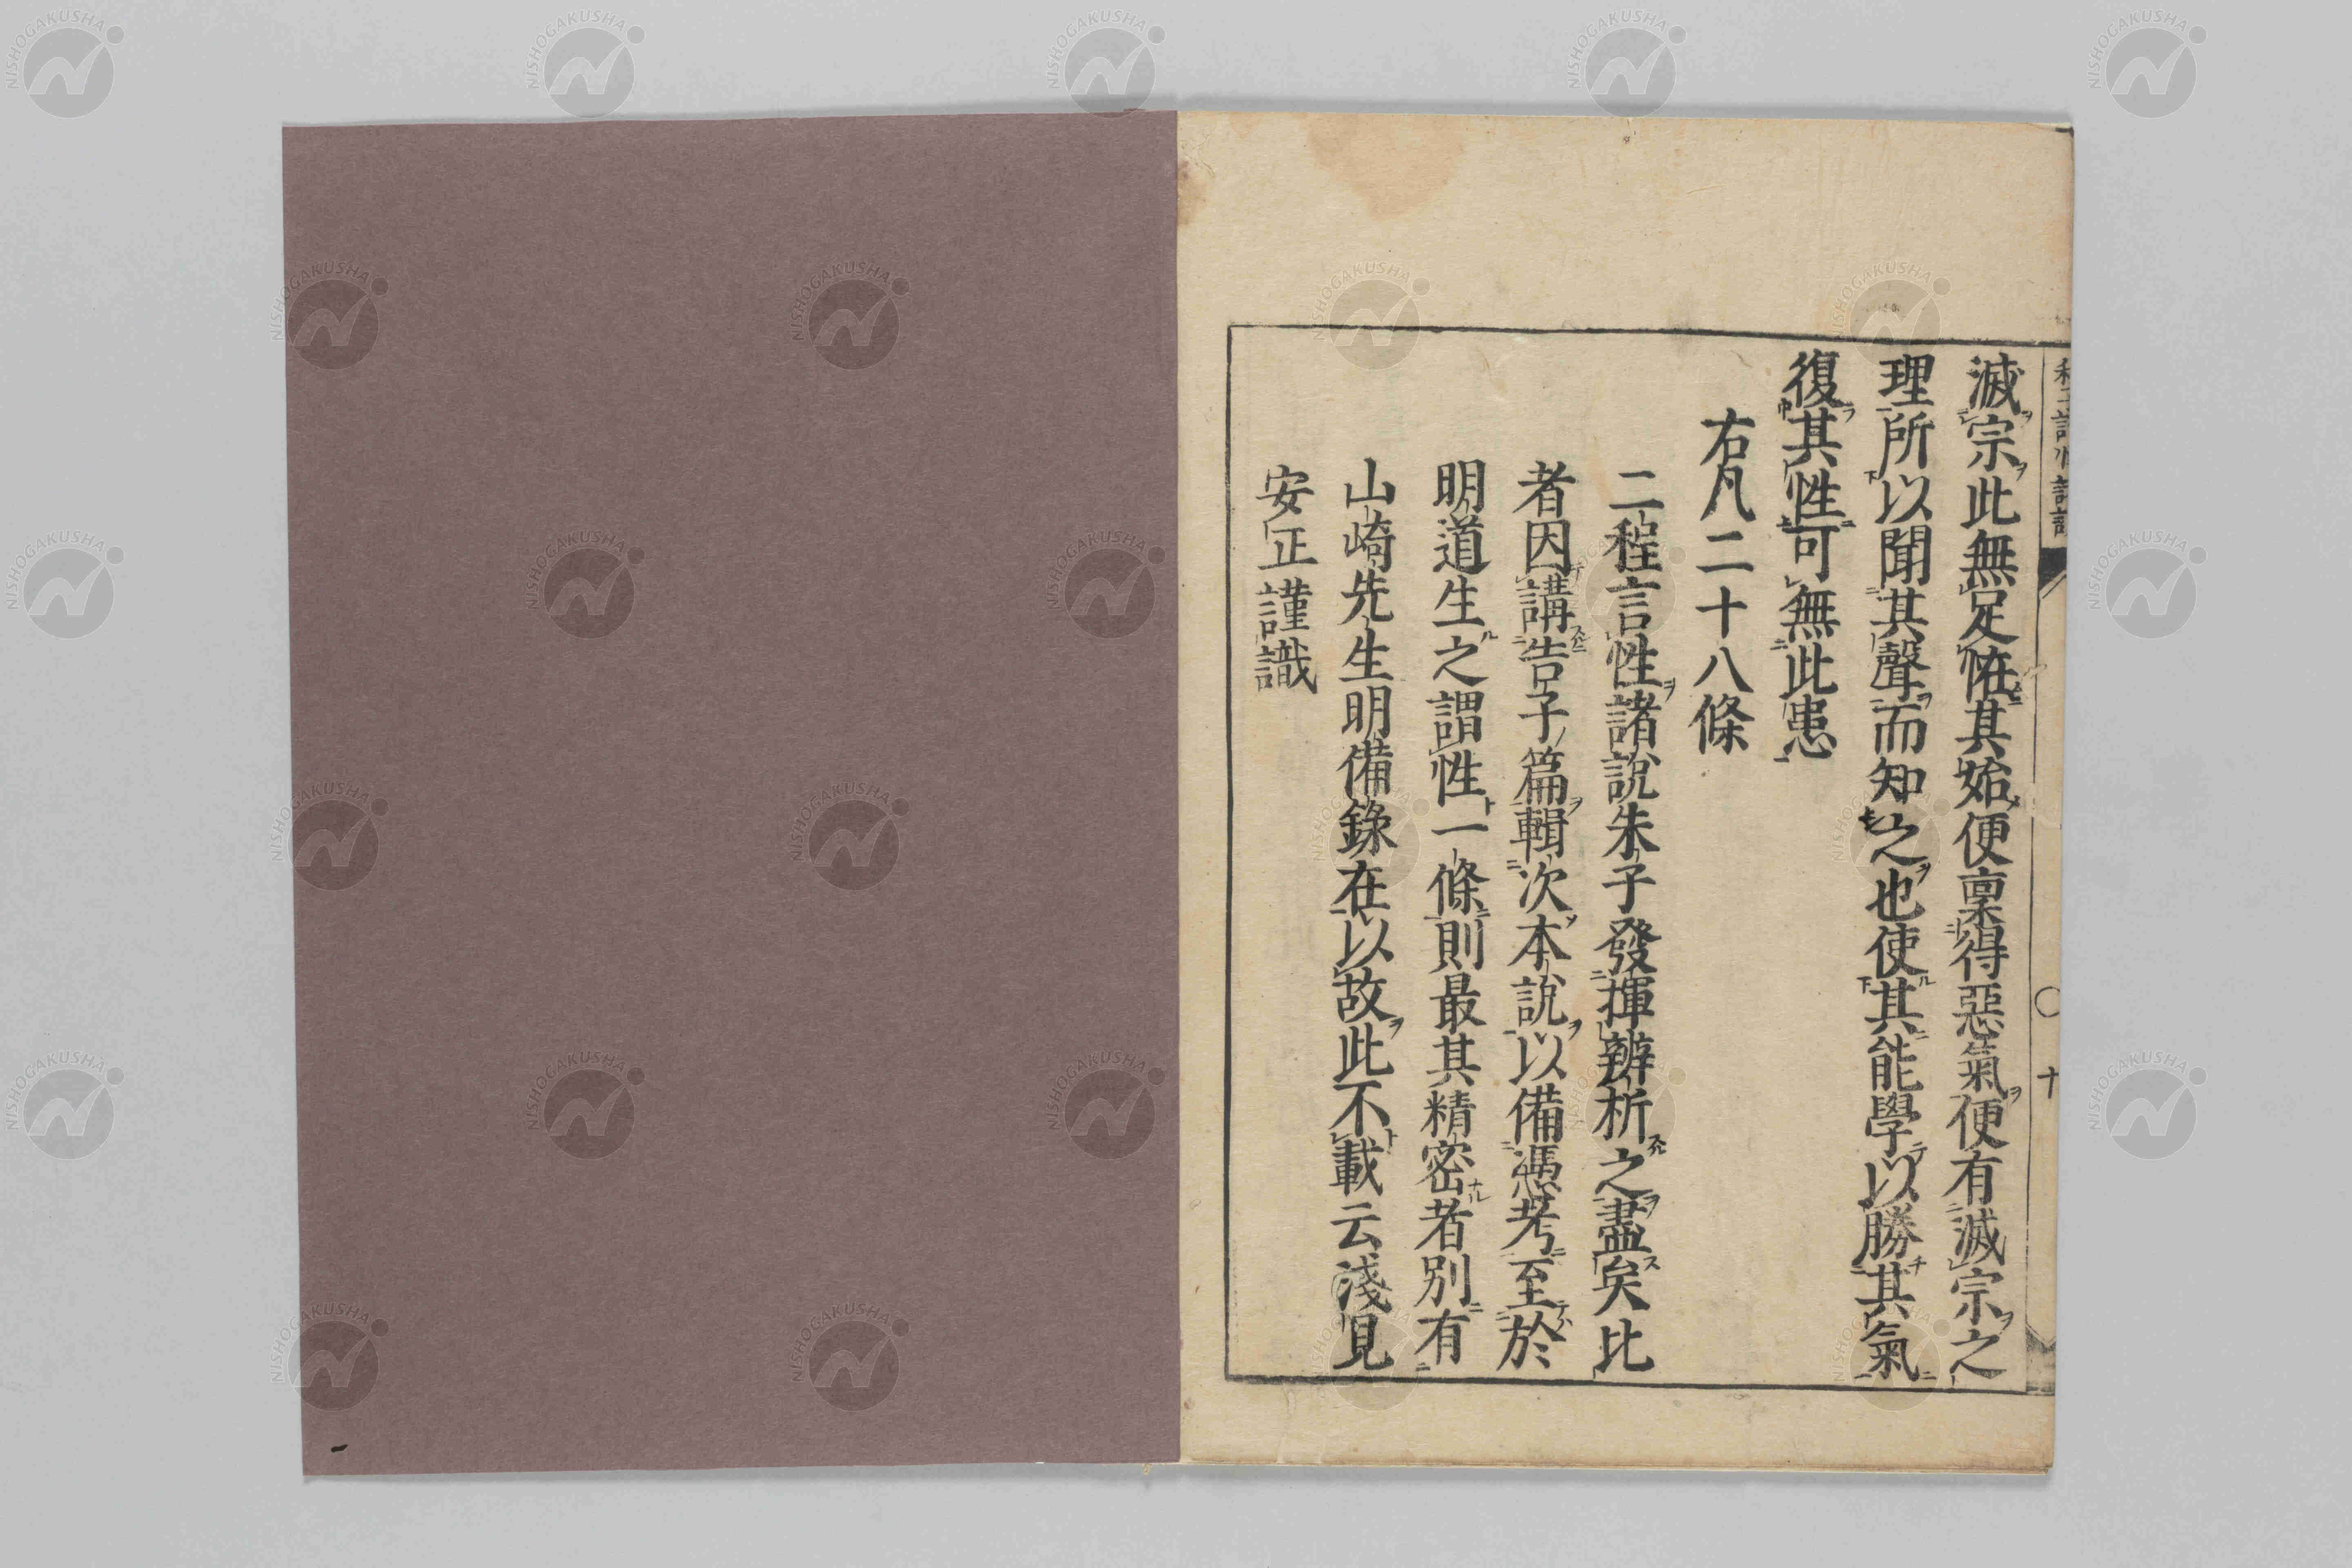 滅宗此無足恠其始便禀得惡氣便有滅宗之
理所以聞其聲而知之也使其能學以勝其氣
復其性可無此患
右凡二十八條
二程言性諸說朱子發揮辨析之盡矣比
者因講告子篇輯次本說以備慿考至於
明道生之謂性一條則最其精密者別有
山崎先生明備錄在以故此不載云淺見
安正謹識
十
NISHOGAKUSHA